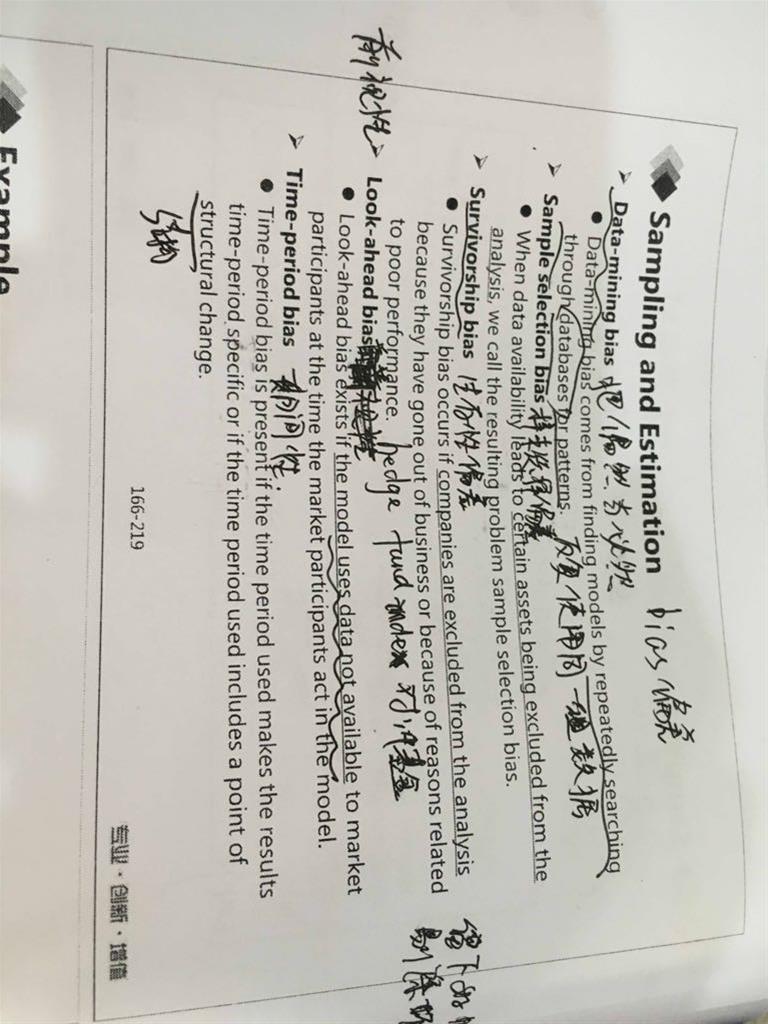 Sampling and Estimation bias 偏差
Data-mining bias 把偶然当必然
Data-mining bias comes from finding models by repeatedly searching
through databases for patterns. 反复使用同一组数据
Sample selection bias 样本选择偏差
When data availability leads to certain assets being excluded from the
analysis, we call the resulting problem sample selection bias.
Survivorship bias 生存性偏差
Survivorship bias occurs if companies are excluded from the analysis
because they have gone out of business or because of reasons related
to poor performance. hedge fund index 对冲基金
前视性 Look-ahead bias
Look-ahead bias exists if the model uses data not available to market
participants at the time the market participants act in the model.
Time-period bias 期间性
Time-period bias is present if the time period used makes the results
time-period specific or if the time period used includes a point of
structural change.
结构
166-219
专业·创新·增值
留下的
剔除
Example